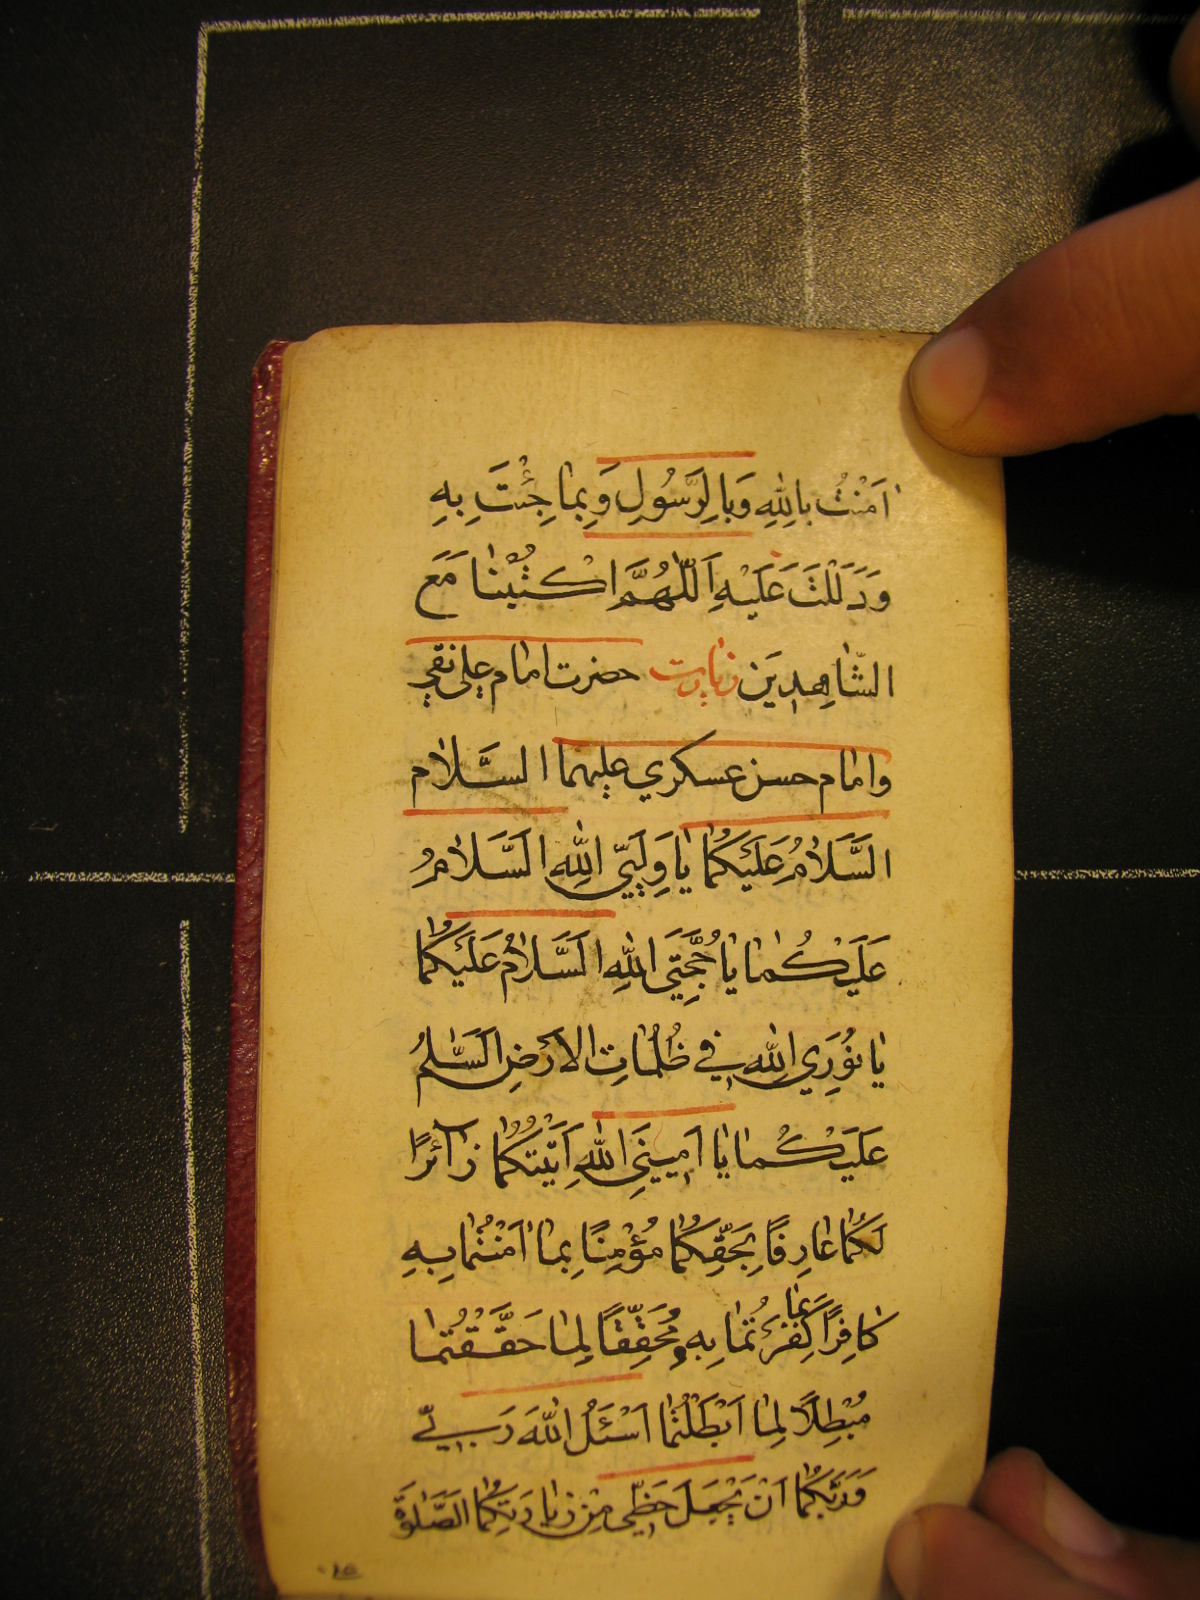 اٰمَنْتُ بِاللّٰهِ وَبِالرَّسُولِ وَبِمٰا جِئْتَ بِهِ
وَدَلَلْتَ عَلَيْهِ اَللّٰهُمَّ اكْتُبْنٰا مَعَ
الشّٰاهِدِيَن زيارت حضرت امام علي نقي
وامام حسن عسكري عليهما السَّلٰام
السَّلٰامُ عَلَيْكُمٰا يٰا وَلِيَّيِ اللّٰهِ السَّلٰامُ
عَلَيْكُمٰا يٰا حُجَّتَيِ اللّٰهِ السَّلٰامُ عَلَيْكُمٰا
يٰا نُورَيِ اللّٰهِ فِي ظُلُمٰاتِ الْاَرْضِ السَّلٰمُ
عَلَيْكُمٰا يٰا اَمِينَيِ اللّٰهِ اَتَيْتُكُمٰا زٰآئِرًا
لَكُمٰا عٰارِفًا بِحَقِّكُمٰا مُؤْمِنًا بِمٰا اٰمَنْتُمٰا بِهِ
كٰافِرًا بِمٰا كَفَرْتُمٰا بِهِ وَمُحَقِّقًا لِمٰا حَقَّقْتُمٰا
مُبْطِلًا لِمٰا اَبْطَلْتُمٰا اَسْئَلُ اللّٰهَ رَبّي
وَرَبَّكُمٰا اَنْ يَجْعَلَ حَظّي مِنْ زِيٰارَتِكُمٰا الصَّلٰوةَ